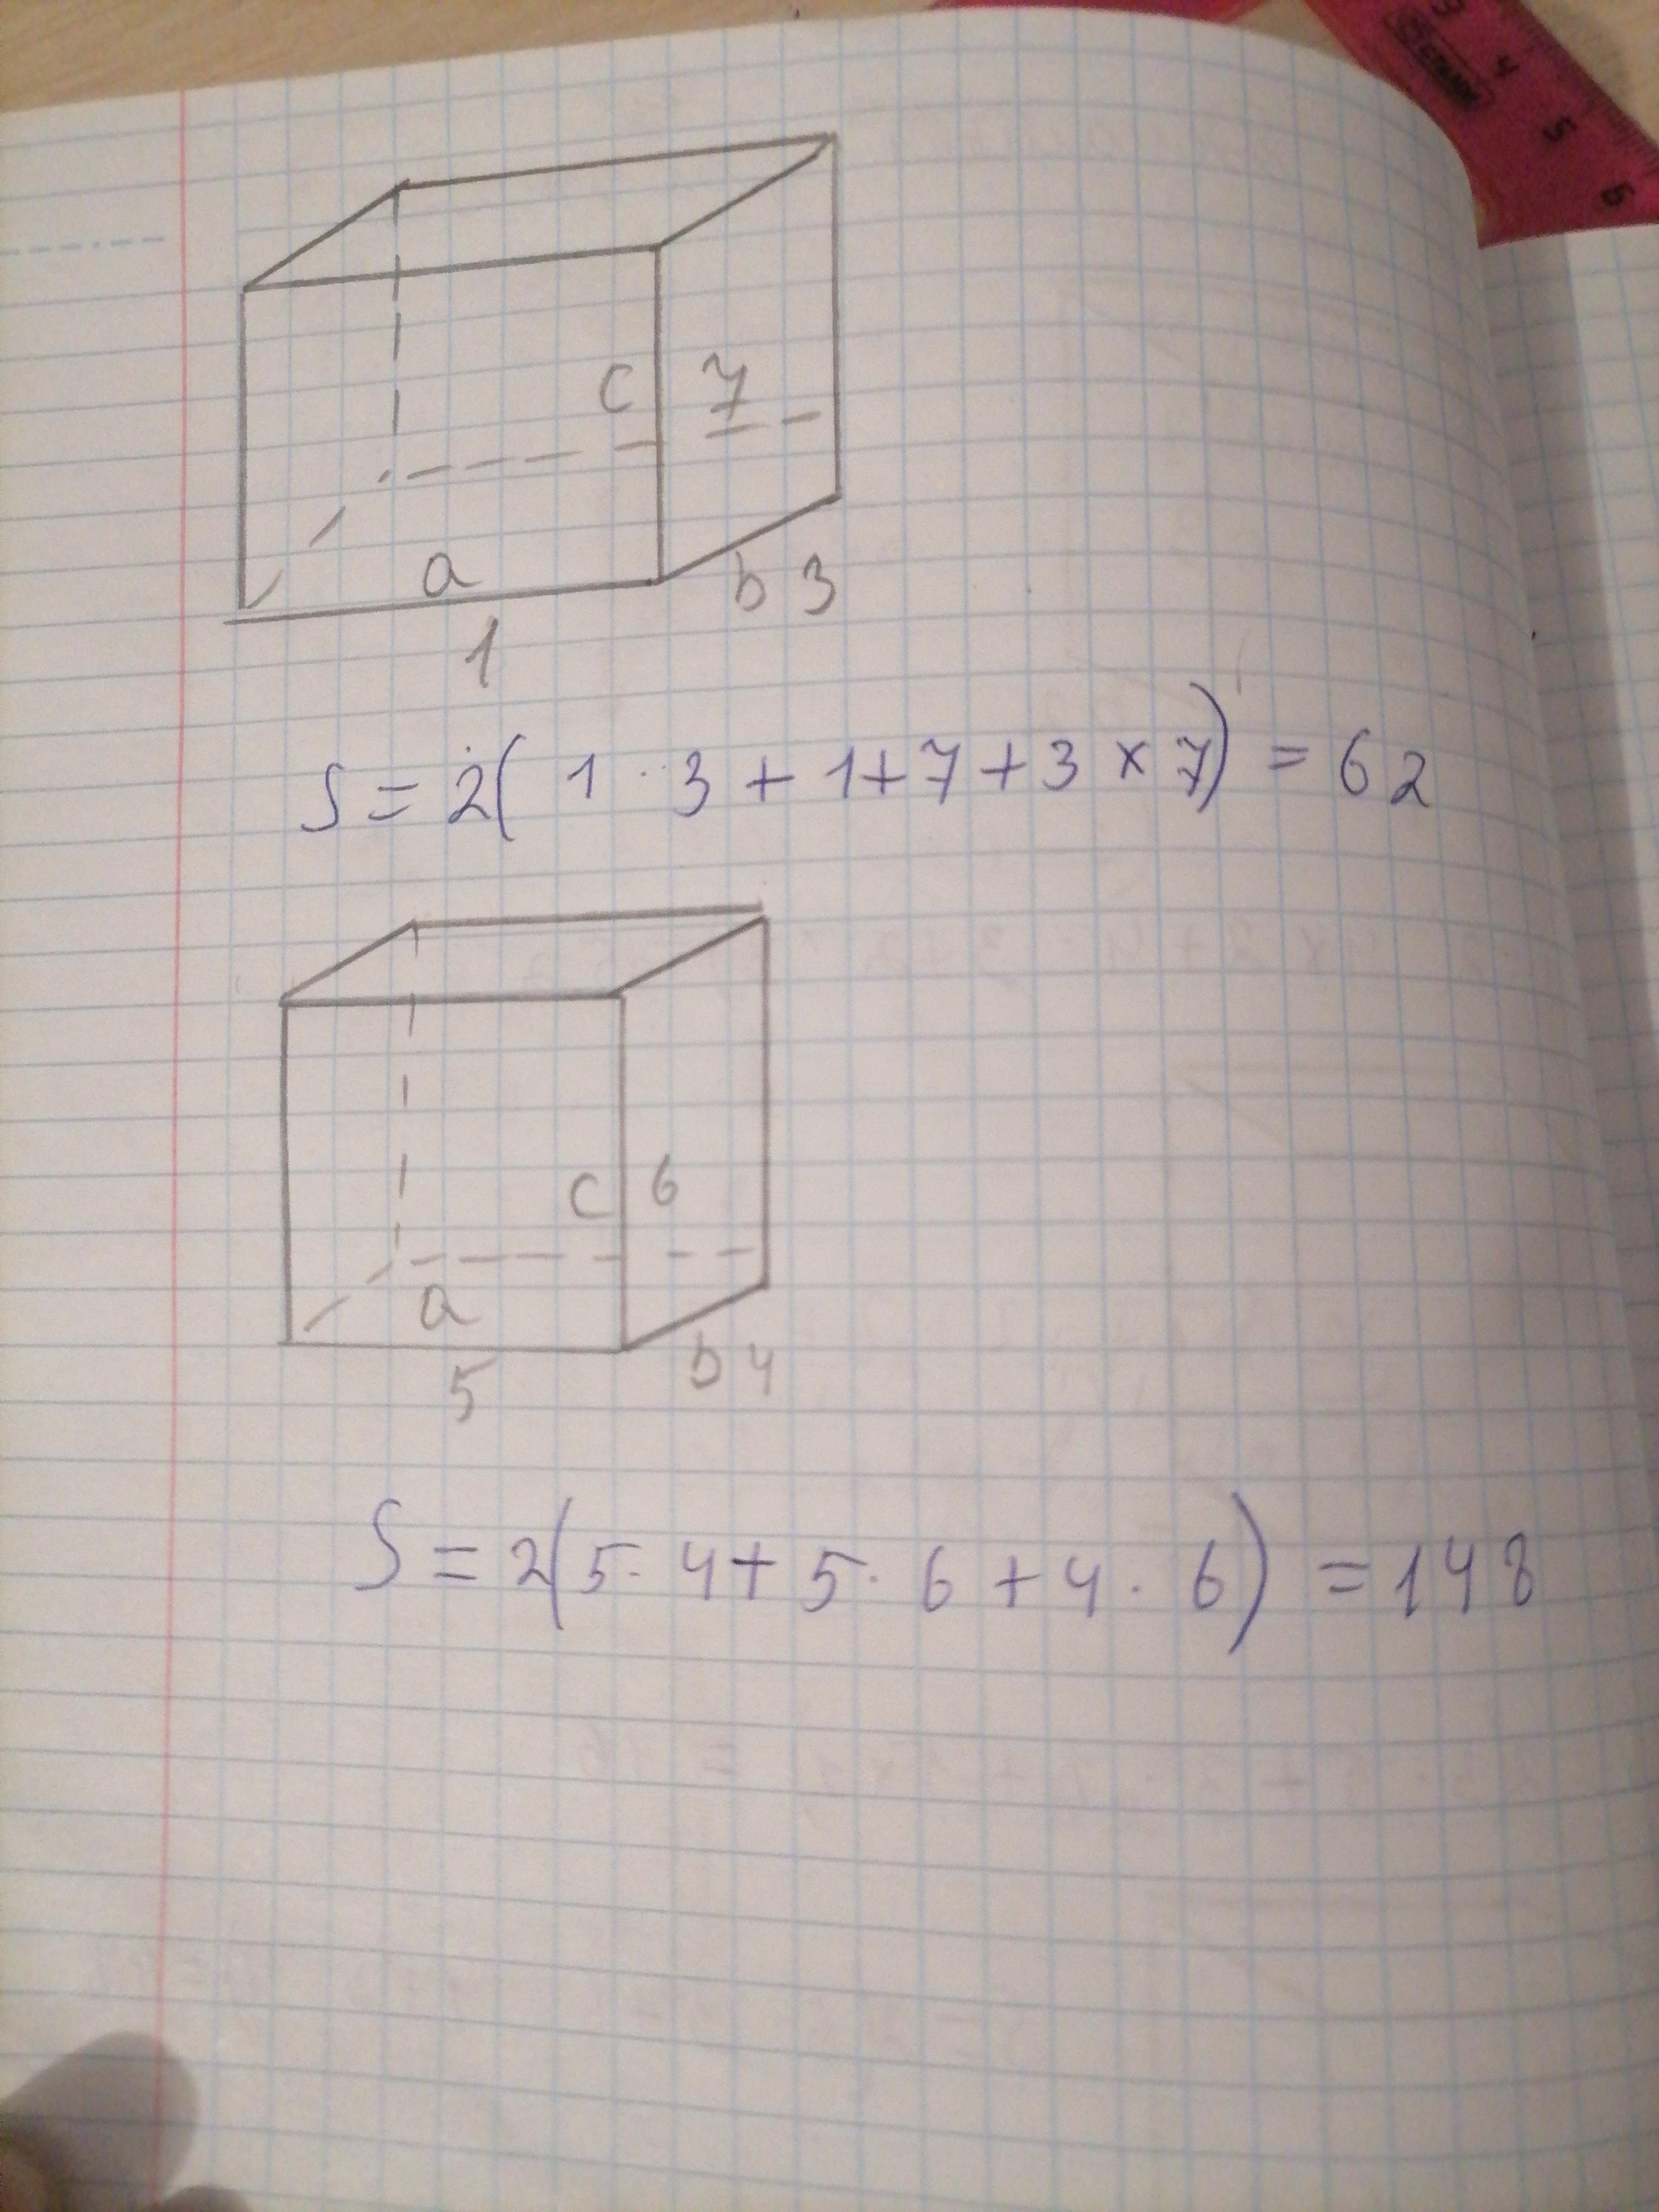 3 4 5 6
c 7
a
b 3
1
S = 2( 1 · 3 + 1+7+3 × 7) = 62
c 6
a
b 4
5
S = 2(5· 4+ 5· 6 +4 · 6) =148